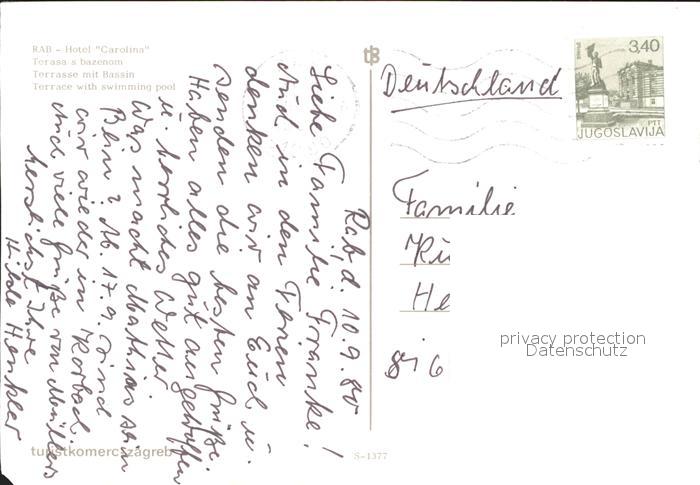 RAB – Hotel "Carolina"
Terasa s bazenom
Terrasse mit Bassin
Terrace with swimming pool
tB
3,40
PTT
JUGOSLAVIJA
Deutschland
Rab, d. 10.9.80
Liebe Familie Franke!
Auch in den Ferien
denken wir an Euch u.
senden die besten Grüße.
Haben alles gut angetroffen
u. herrliches Wetter.
Was macht Mathias sein
Bein? Ab 17.9. sind
wir wieder in Korbach.
Auch viele Grüße von Müllers
herzlichst Ihre
Hilde Henkler
Familie
Ku
He
privacy protection
Datenschutz
turistkomerc zagreb
S-1377